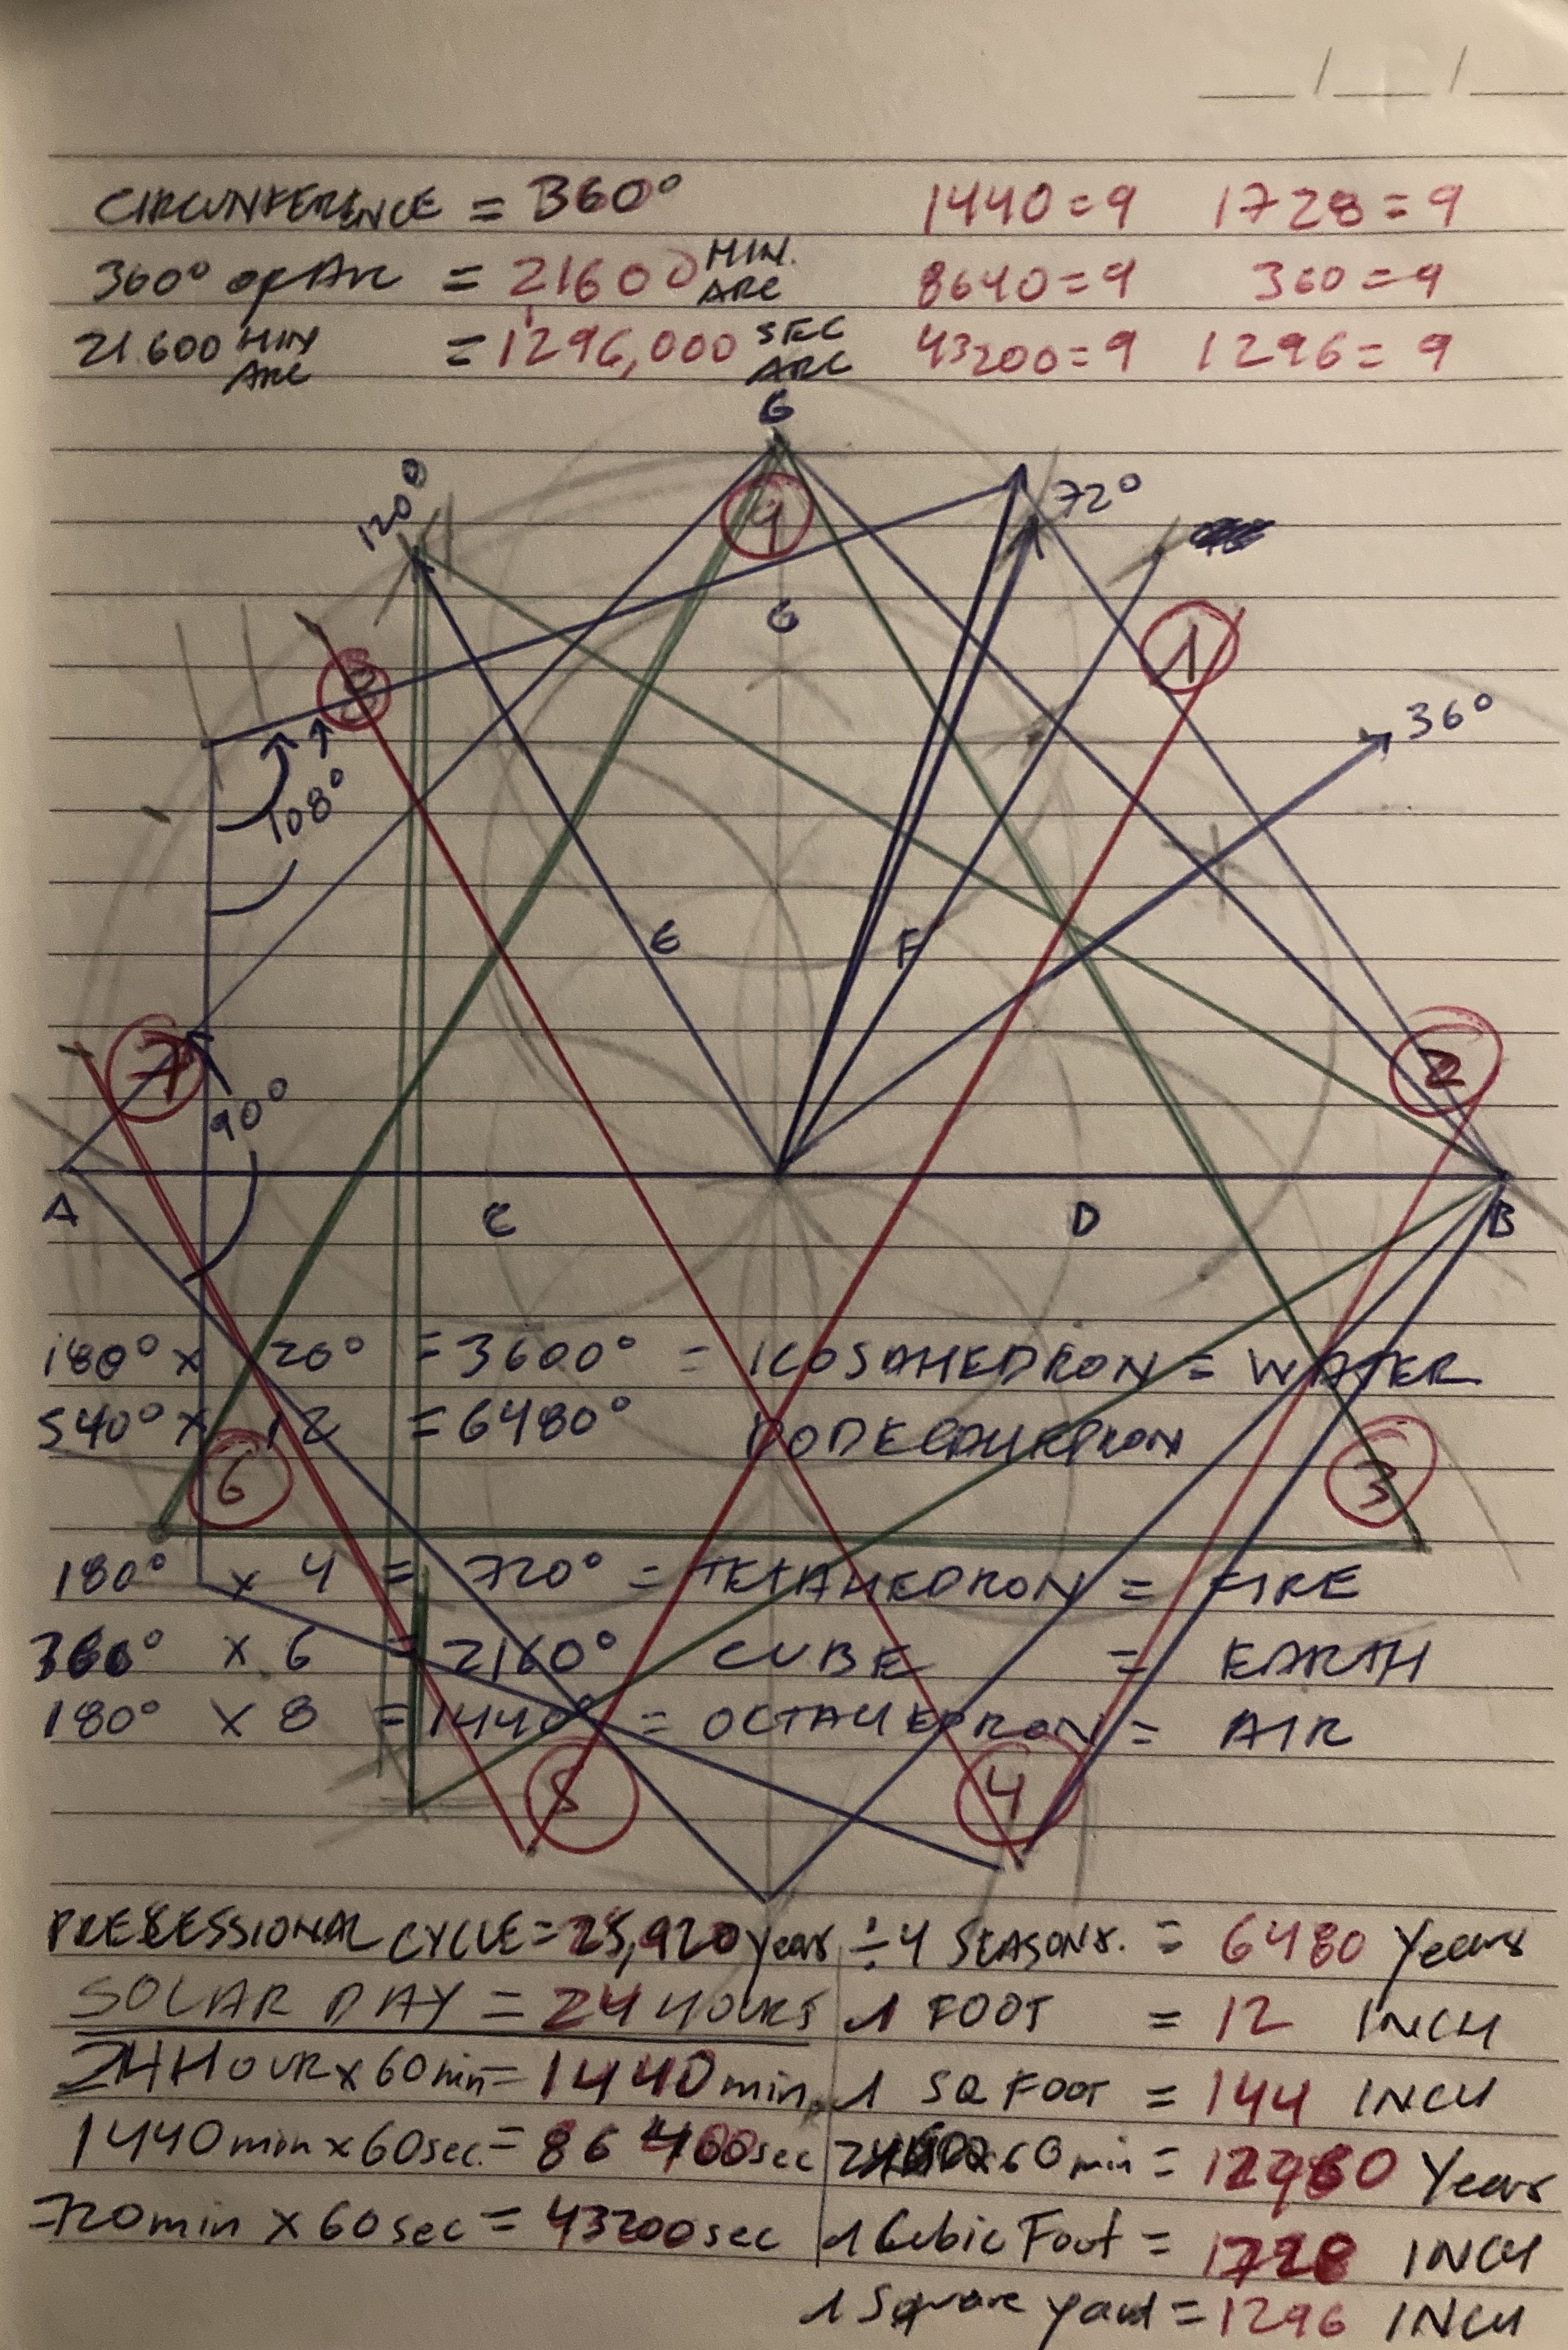 __/__/__
CIRCUNFERENCE = 360° 1440=9 1728=9
360° of Arc = 21600 MIN. ARC 8640=9 360=9
21.600 MIN ARC = 1296,000 SEC ARC 43200=9 1296=9
G
120° 9 72°
G 1
8 36°
108°
E F
7 2
90°
A C D B
180° x 20° = 3600° = ICOSAHEDRON = WATER
540° x 12 = 6480° DODECAHEDRON
6 3
180° x 4 = 720° = TETAHEDRON = FIRE
360° x 6 = 2160° CUBE = EARTH
180° x 8 = 1440° = OCTAHEDRON = AIR
5 4
PRESESSIONAL CYCLE = 25,920 years ÷ 4 SEASONS. = 6480 Years
SOLAR DAY = 24 HOURS 1 FOOT = 12 INCH
24 HOUR x 60 min = 1440 min 1 SQ FOOT = 144 INCH
1440 min x 60 sec = 86 400 sec x 60 min = 12960 Years
720 min x 60 sec = 43200 sec 1 Cubic Foot = 1728 INCH
1 Square yard = 1296 INCH